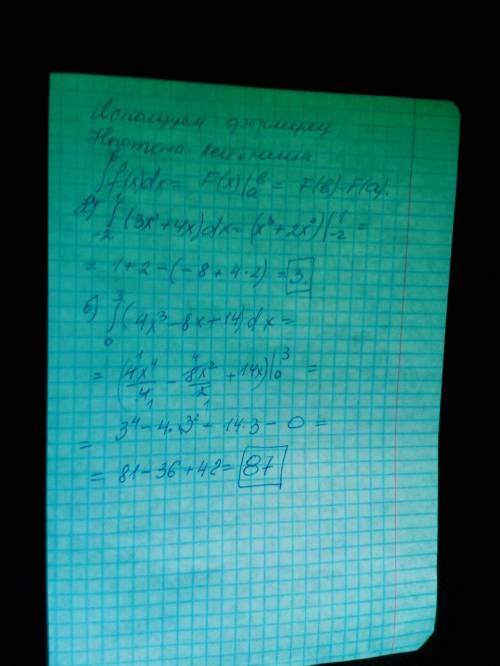 Используем формулу
Ньютона-Лейбница
∫ₐᵇ f(x)dx = F(x)|ₐᵇ = F(b)-F(a).
a) ∫₋₂¹ (3x²+4x)dx = (x³+2x²)|₋₂¹ =
= 1+2-(-8+4·2) = 3.
б) ∫₀³ (4x³-8x+14)dx =
= (4x⁴/4 - 8x²/2 + 14x)|₀³ =
= 3⁴-4·3²-14·3-0 =
= 81-36+42= 87